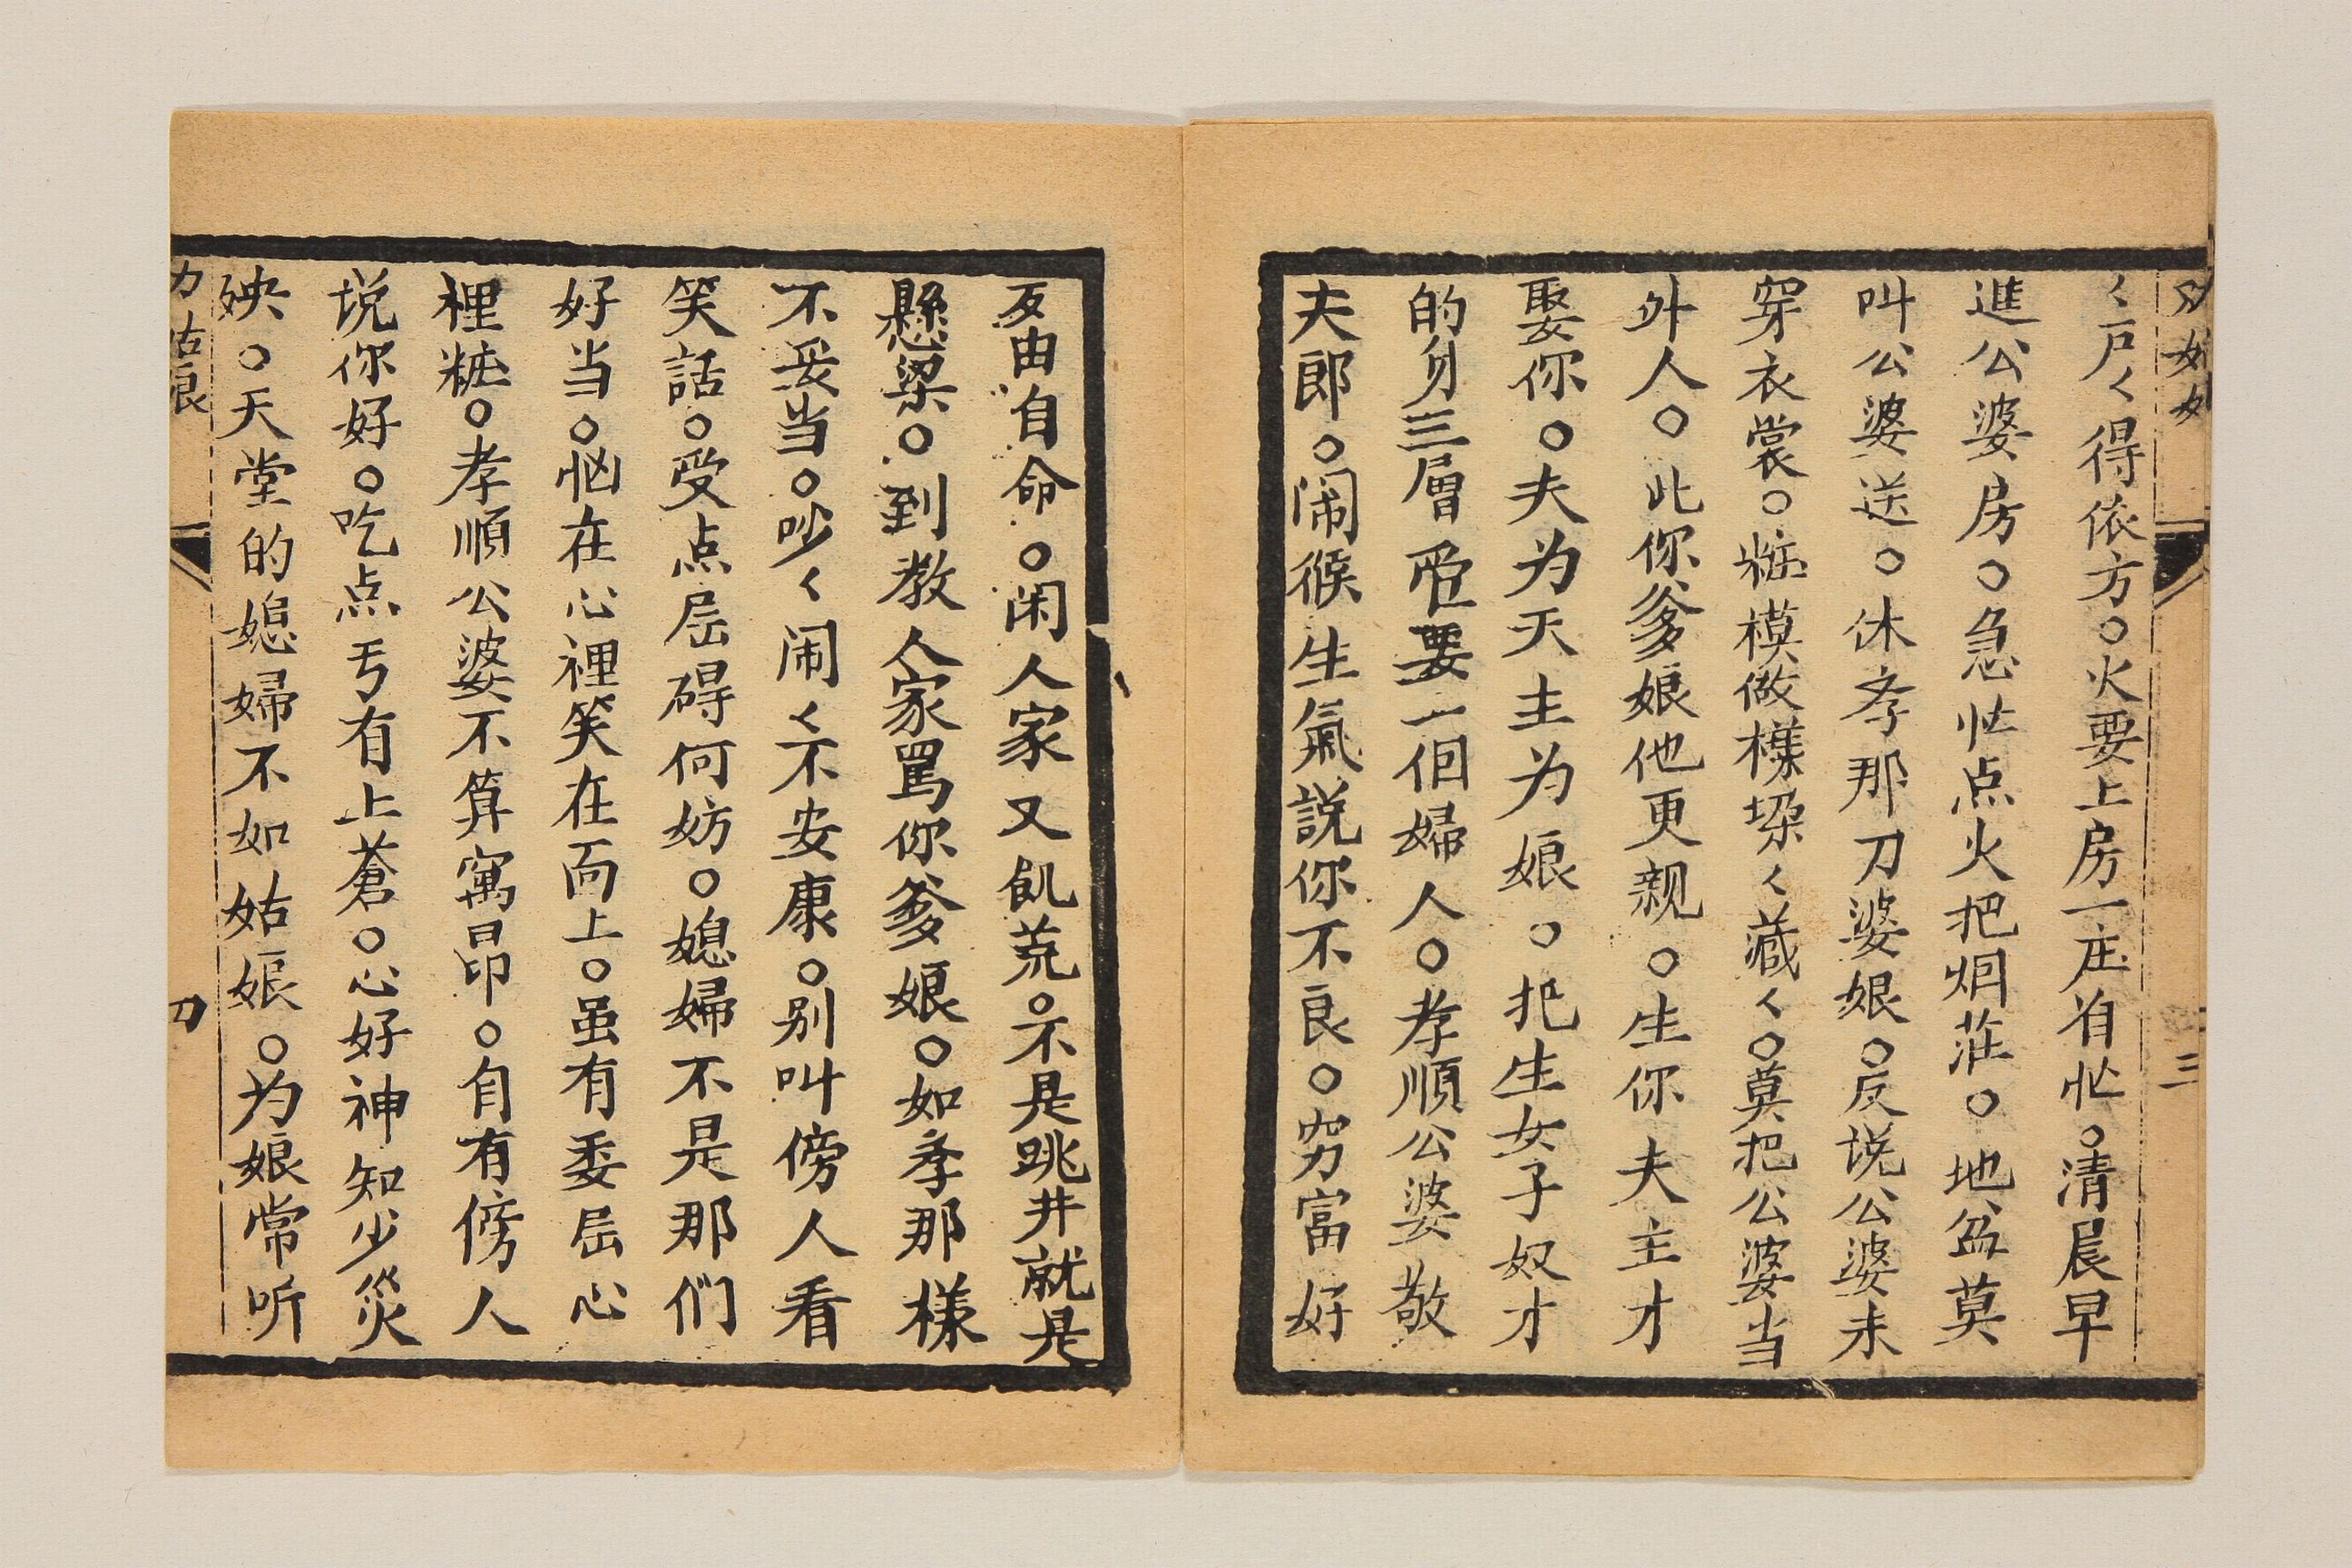 三
〻户〻得依方○火要上房一庄有忙○清晨早
進公婆房○急忙点火把烟茳○地盆莫
叫公婆送○休斈那刀婆娘○反说公婆未
穿衣裳○粧模做樣㙐〻藏〻○莫把公婆当
外人○此你爹娘他更親○生你夫主才
娶你○夫为天主为娘○把生女子奴才
的身三層受要一個婦人○孝順公婆敬
夫郎○闹候生氣説你不良○穷富好
歹由自命○闲人家又飢荒○不是跳井就是
懸梁○到教人家罵你爹娘○如斈那樣
不妥当○吵〻闹〻不安康○别叫傍人看
笑話○受点屈碍何妨○媳婦不是那们
好当○恼在心裡笑在面上○虽有委屈心
裡粧○孝順公婆不算寓昂○自有傍人
说你好○吃点亏有上蒼○心好神知少災
殃○天堂的媳婦不如姑娘○为娘常听
刁姑良
刀